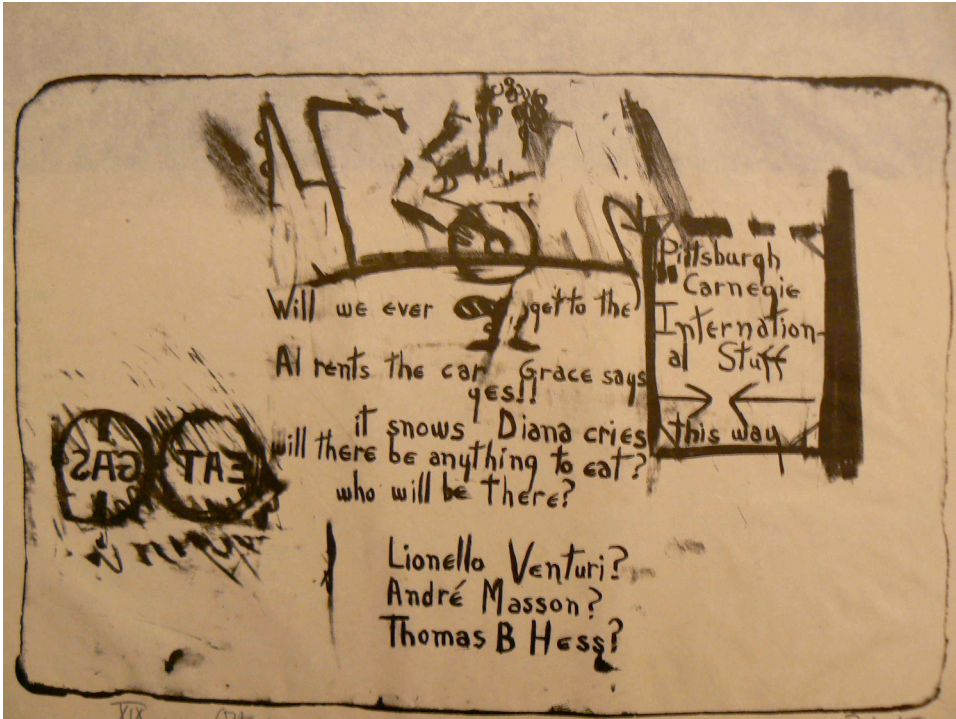 Will we ever get to the
Al rents the car Grace says
yes!!
it snows Diana cries
will there be anything to eat?
who will be there?
Lionello Venturi?
André Masson?
Thomas B Hess?
Pittsburgh
Carnegie
Internation-
al Stuff
this way
GAS EAT
XIX